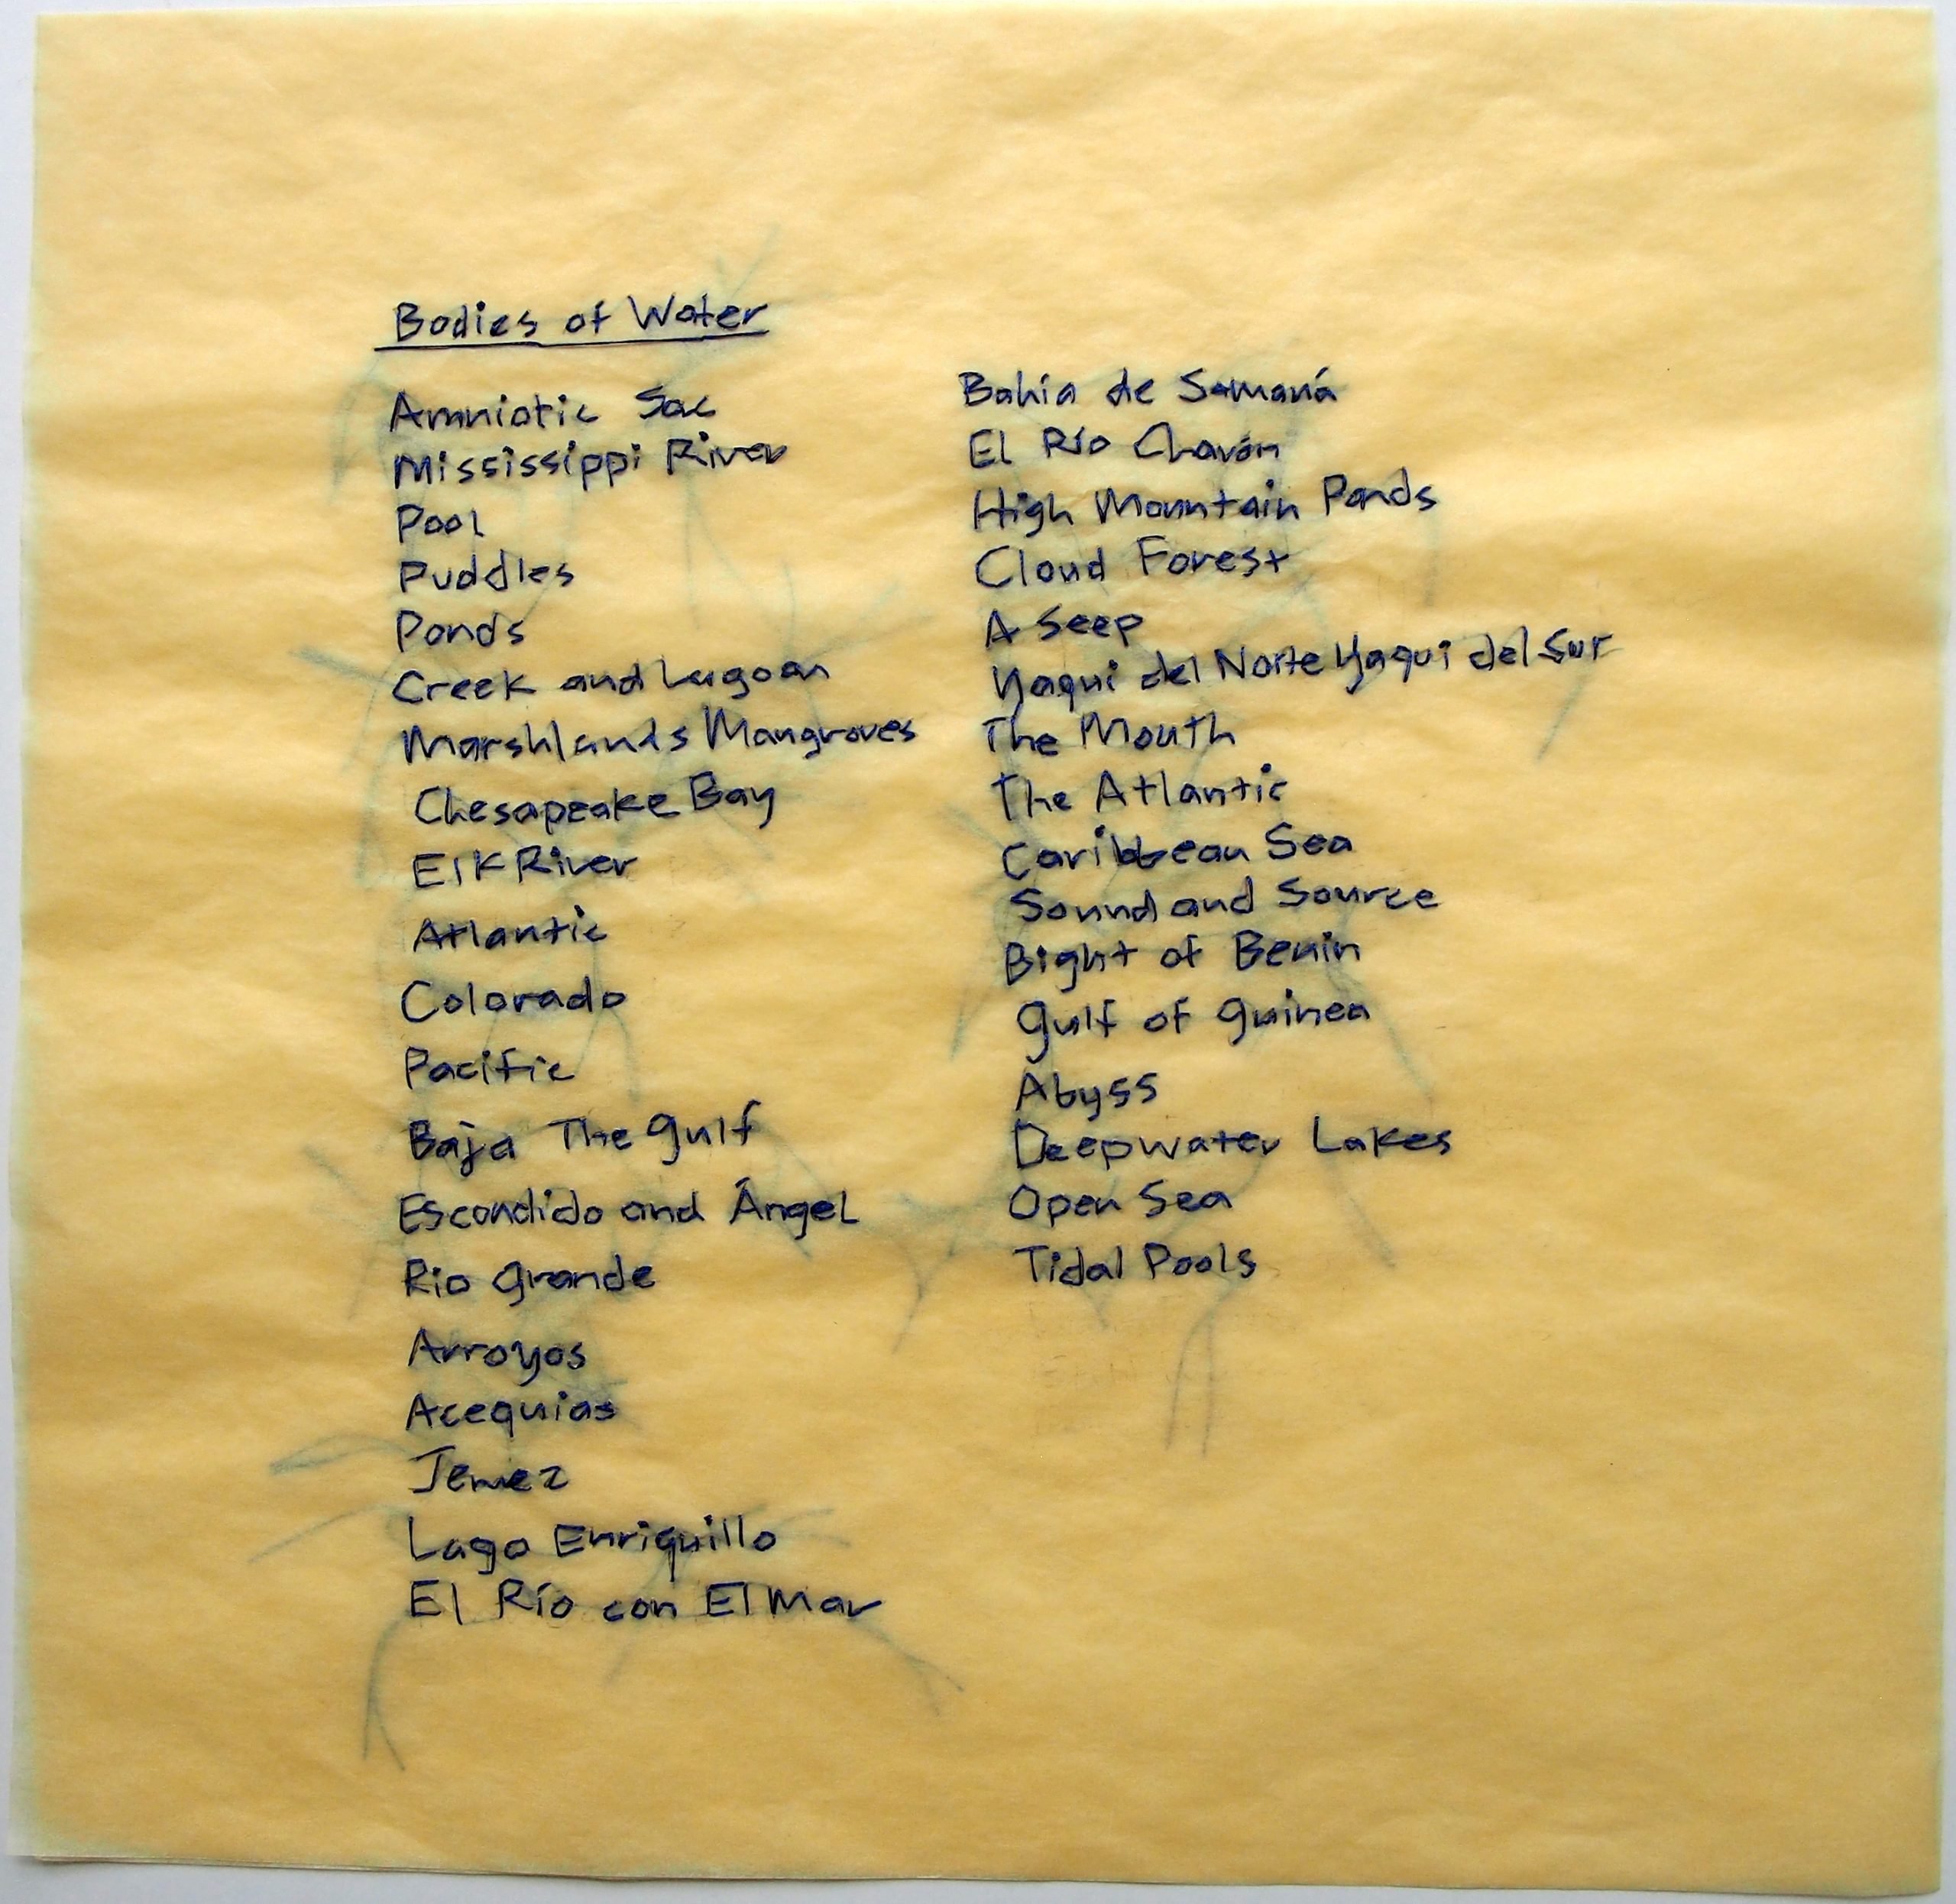 Bodies of Water
Amniotic Sac
Mississippi River
Pool
Puddles
Ponds
Creek and Lagoon
Marshlands Mangroves
Chesapeake Bay
Elk River
Atlantic
Colorado
Pacific
Baja The Gulf
Escondido and Ángel
Rio Grande
Arroyos
Acequias
Jemez
Lago Enriquillo
El Río con El Mar
Bahía de Samaná
El Río Chavón
High Mountain Ponds
Cloud Forest
A Seep
Yaqui del Norte Yaqui del Sur
The Mouth
The Atlantic
Caribbean Sea
Sound and Source
Bight of Benin
Gulf of Guinea
Abyss
Deepwater Lakes
Open Sea
Tidal Pools